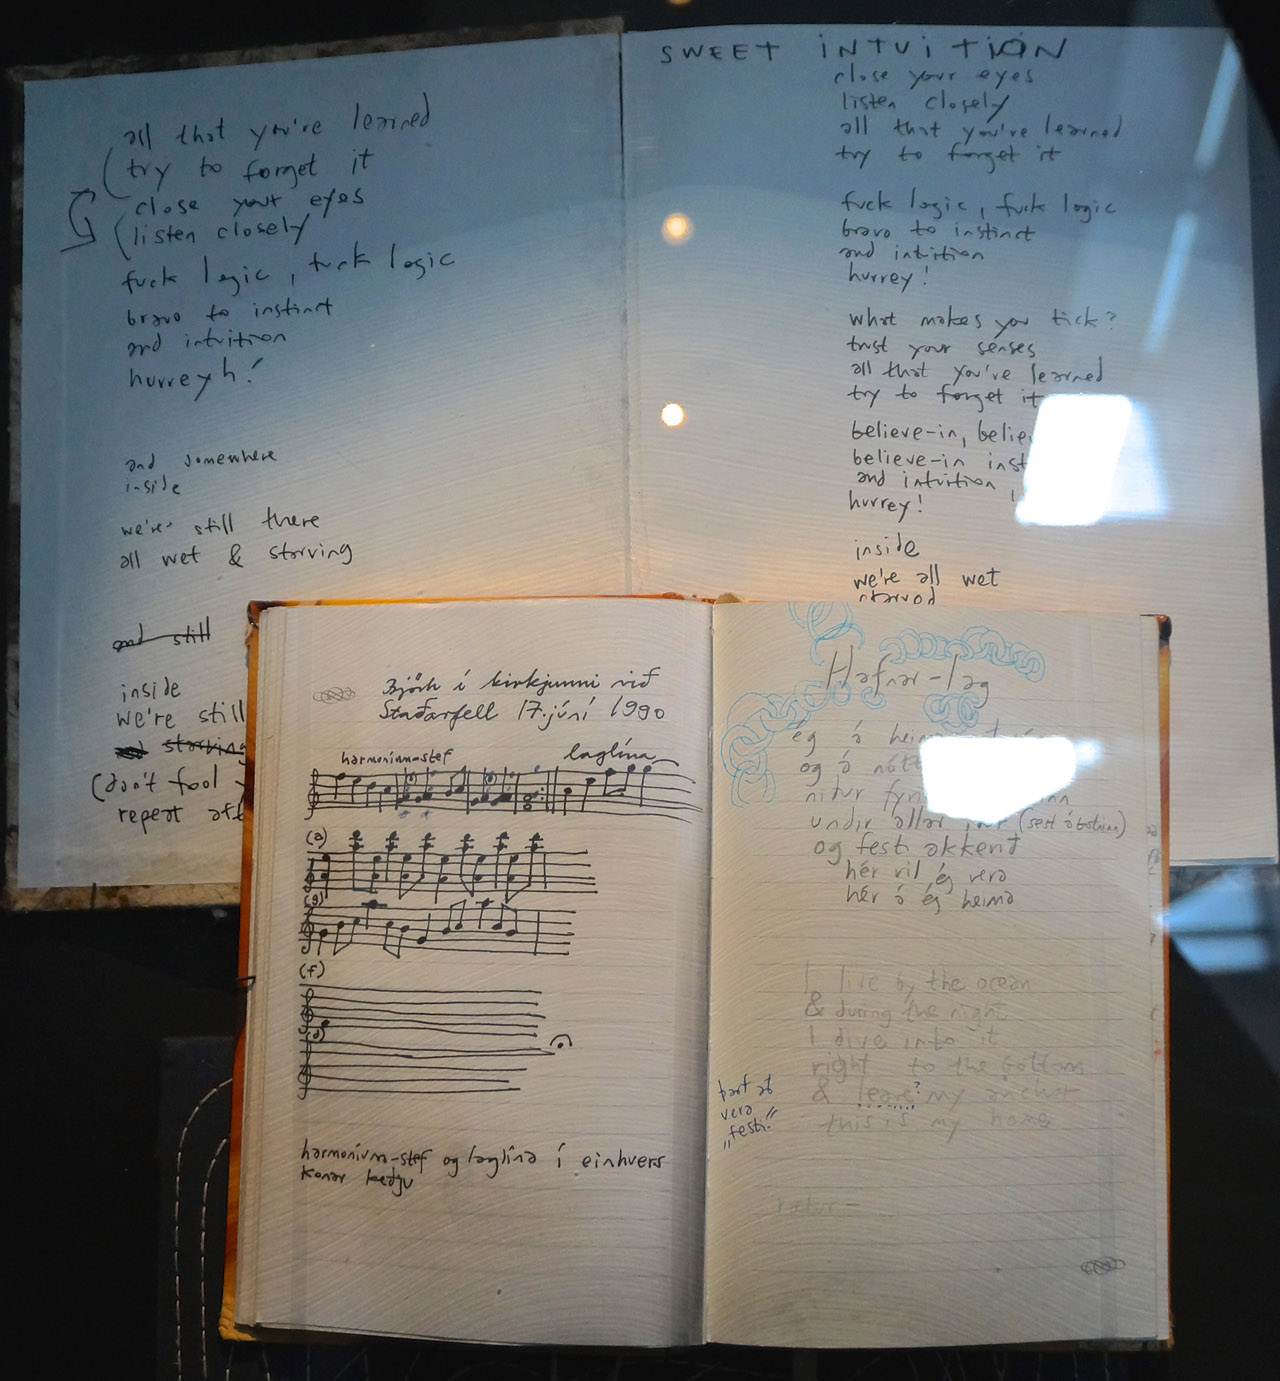 all that you're learned
try to forget it
close your eyes
listen closely
fuck logic, fuck logic
bravo to instinct
and intuition
hurreyh!
and somewhere
inside
we're still there
all wet & starving
and still
inside
we're still
starving
(don't fool
repeat
SWEET INTUITION
close your eyes
listen closely
all that you've learned
try to forget it
fuck logic, fuck logic
bravo to instinct
and intuition
hurrey!
what makes you tick?
trust your senses
all that you've learned
try to forget it
believe-in,
believe-in
and intuition
hurrey!
inside
we're all wet
starved
Björk í kirkjunni við
Staðarfell 17. júní 1990
harmoníum-stef
laglína
(a)
(g)
(f)
(d)
harmoníum-stef og laglína í einhvers
konar keðju
Hafnar-lag
ég á
og á
niður
undir allar
og festi akkerið
hér vil ég vera
hér á ég heima
I live by the ocean
& during the night
I dive into it
right to the bottom
& leave? my anchor
this is my home
þarf að
vera
„festi"